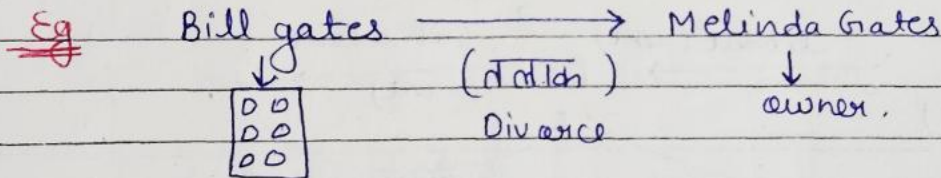 Eg Bill gates → Melinda Gates
↓ (तलाक) ↓
Divorce owner.